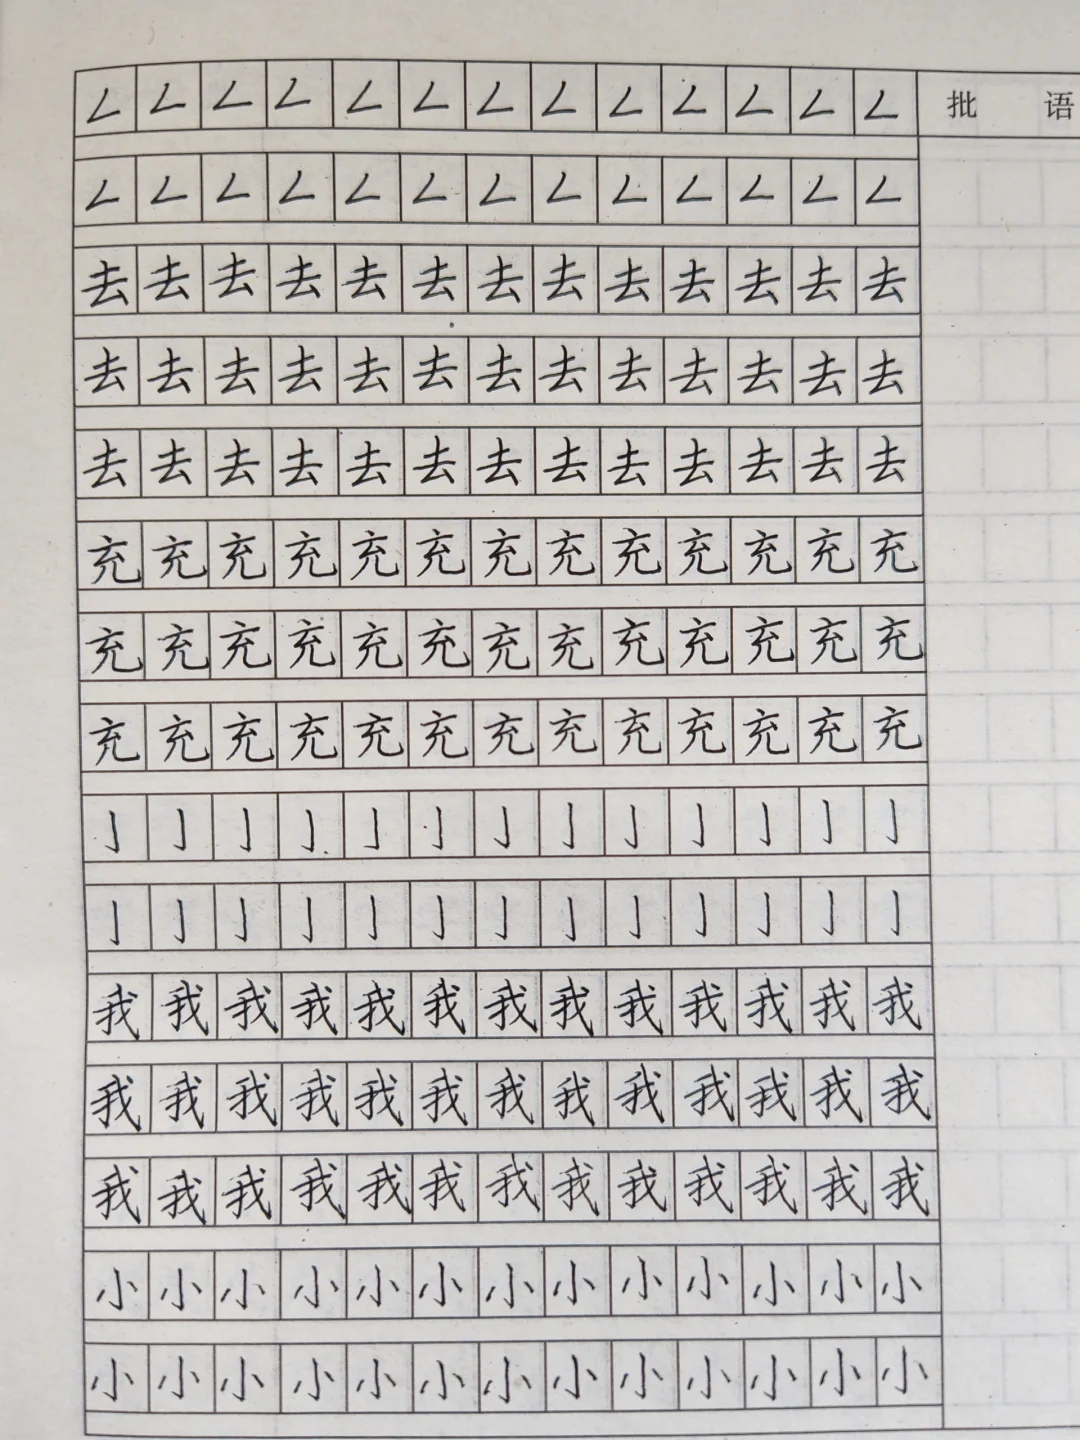 ㄥㄥㄥㄥㄥㄥㄥㄥㄥㄥㄥㄥㄥ 批 语
ㄥㄥㄥㄥㄥㄥㄥㄥㄥㄥㄥㄥㄥ
去去去去去去去去去去去去去
去去去去去去去去去去去去去
去去去去去去去去去去去去去
充充充充充充充充充充充充充
充充充充充充充充充充充充充
充充充充充充充充充充充充充
亅亅亅亅亅亅亅亅亅亅亅亅亅
亅亅亅亅亅亅亅亅亅亅亅亅亅
我我我我我我我我我我我我我
我我我我我我我我我我我我我
我我我我我我我我我我我我我
小小小小小小小小小小小小小
小小小小小小小小小小小小小